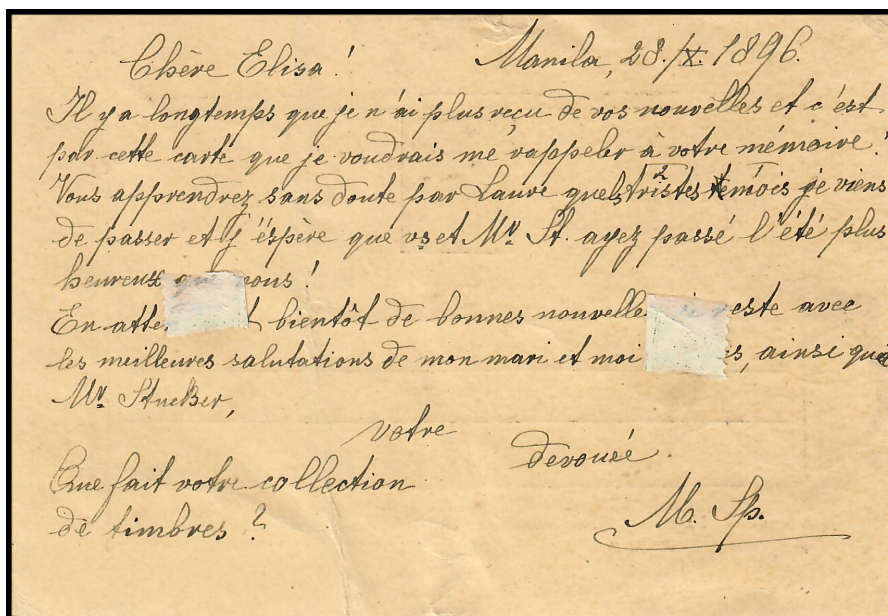 Chère Elisa! Manila, 28./X. 1896.
Il y a longtemps que je n'ai plus reçu de vos nouvelles et c'est
par cette carte que je voudrais me rappeler à votre mémoire!
Vous apprendrez sans doute par Laure quels tristes 2 mois je viens
de passer et j'éspère que vs et Mr St. ayez passé l'été plus
heureux que nous!
En atte t bientôt de bonnes nouvelle je reste avec
les meilleures salutations de mon mari et moi s, ainsi que
Mr
votre
devouée
Que fait votre collection
de timbres?
M. Sp.